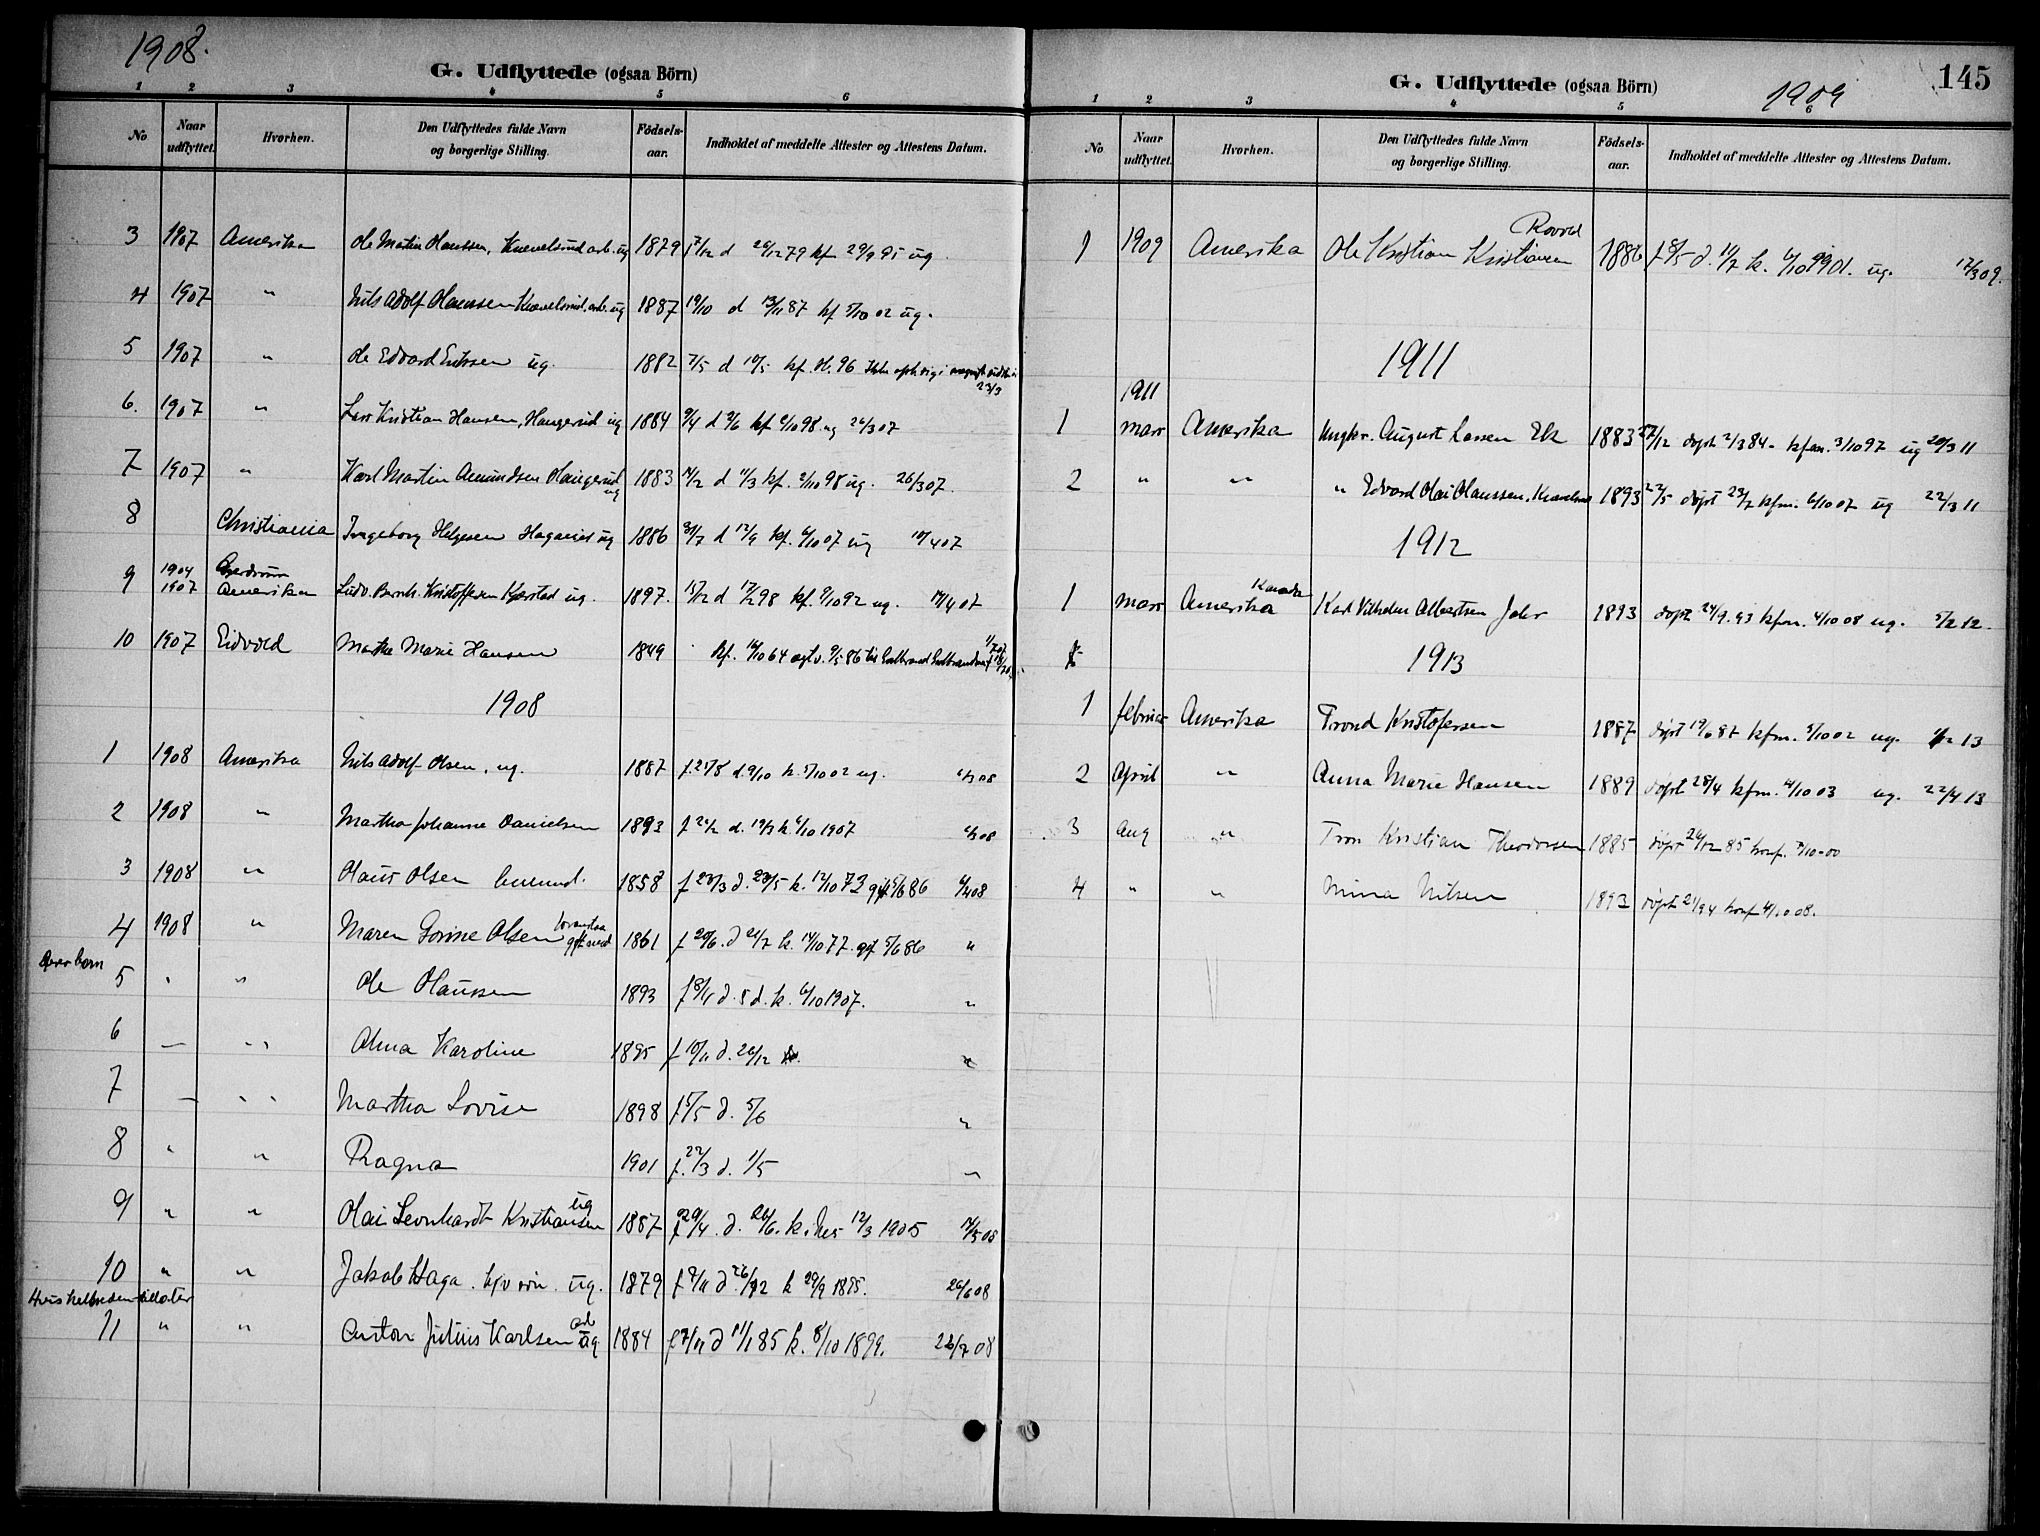 1908.
G. Udflyttede (ogsaa Börn)
1 2 3 4 5 6
No Naar udflyttet. Hvorhen. Den Udflyttedes fulde Navn og borgerlige Stilling. Födsels-aar. Indholdet af meddelte Attester og Attestens Datum.
3 1907 Amerika Ole Martin Hanssen, arb. ug 1879 17/12 d 26/12 79 kf 29/9 95 ug
4 1907 " Nils Adolf Hanssen arb. ug 1887 19/10 d 13/11 87 kf 5/10 02 ug.
5 1907 " Ole Edvard ug. 1882 7/5 d 19/5 kf. 96
23/3
6. 1907 " Lars Kristian Hansen, Haugerud ug 1884 9/4 d 2/6 kf 2/10 98 ug 26/3 07
7 1907 " Karl Martin Amundsen Haugerud ug 1883 14/2 d 11/3 kf. 2/10 98 ug. 26/3 07.
8 Christiania Ingeborg Helgesen ug 1886 31/7 d 12/9 kf. 6/10 07 ug 10/4 07
9 1904 Gjerdrum
1907 Amerika Ludv. Bernh. Kristoffersen Kjerstad ug. 1897. 15/12 d 17/2 98 kf. 9/10 92 ug. 19/4 07
10 1907 Eidvold Marthe Marie Hansen 1849 kf. 16/10 64 5/5 86 til
1908
1 1908 Amerika Nils Adolf Olsen, ug. 1887 f. 27/8 d. 9/10 k. 5/10 02 ug.
2 1908 " Martha Johanne Danielsen 1893 f 24/2 d. 19/3 k 6/10 1907
3 1908 " Olaus Olsen 1858 f 23/3 d. 23/5 k. 12/10 73 gift 5/6 86 6/4 08
4 1908 " Maren Lovine Olsen gift med 1861 f 20/6. d 21/7 k. 14/10 77. gift 5/6 86 "
børn
5 " " Ole Olaussen 1893 f 8/11 d. s d. k. 6/10 1907. "
6 — " Alma Karoline 1895 f 10/11 d. 26/12 "
7 — " Martha Lovise 1898 f 5/5 d. 5/6 "
8 " " Ragna 1901 f. 22/3 d. 1/5 "
9 " " Olai Leonhardt Kristiansen ug 1887 f 29/4. d. 26/6. k. Nes 12/3 1905 14/5 08
10 " " Jakob Haga. ug. 1879 f 9/11 d 26/12 k 29/9 1895. 26/6 08
11 " " Anton Julius Karlsen arb ug 1884 f 27/11 d 11/1 85 k. 8/10 1899. 26/9 08
145
G. Udflyttede (ogsaa Börn)
1909
1 2 3 4 5 6
No Naar udflyttet. Hvorhen. Den Udflyttedes fulde Navn og borgerlige Stilling. Födsels-aar. Indholdet af meddelte Attester og Attestens Datum.
1 1909 Amerika Ole Kristian Kristiansen 1886 f 8/5 d. 11/7 k. 6/10 1901. ug. 17/3 09.
1911
1911
1 mars Amerika Ungkr. August Larsen Ek 1883 27/12 døpt 2/3 84 - kfm. 3/10 97 ug 20/3 11
2 " " " Edvard Olai Olaussen, 1893 22/5 døpt 23/7 kfm. 6/10 07 ug 22/3 11
1912
1 mars Amerika Kanada Karl Vilhelm Albertsen 1893 døpt 24/9. 93 kfm. 4/10 08 ug. 5/2 12.
1913
1 februar Amerika Trond Kristofersen 1887 døpt 19/6 87 kfm. 5/10 02 ug. 13
2 April " Anna Marie Hansen 1889 døpt 28/4 kfm. 4/10 03 ug. 22/4 13
3 Aug " Tron Kristian Theodorsen 1885 døpt 26/12 85 konf. 7/10-00
4 " " Mina Nilsen 1893 døpt 21/94 konf 4/10 08.